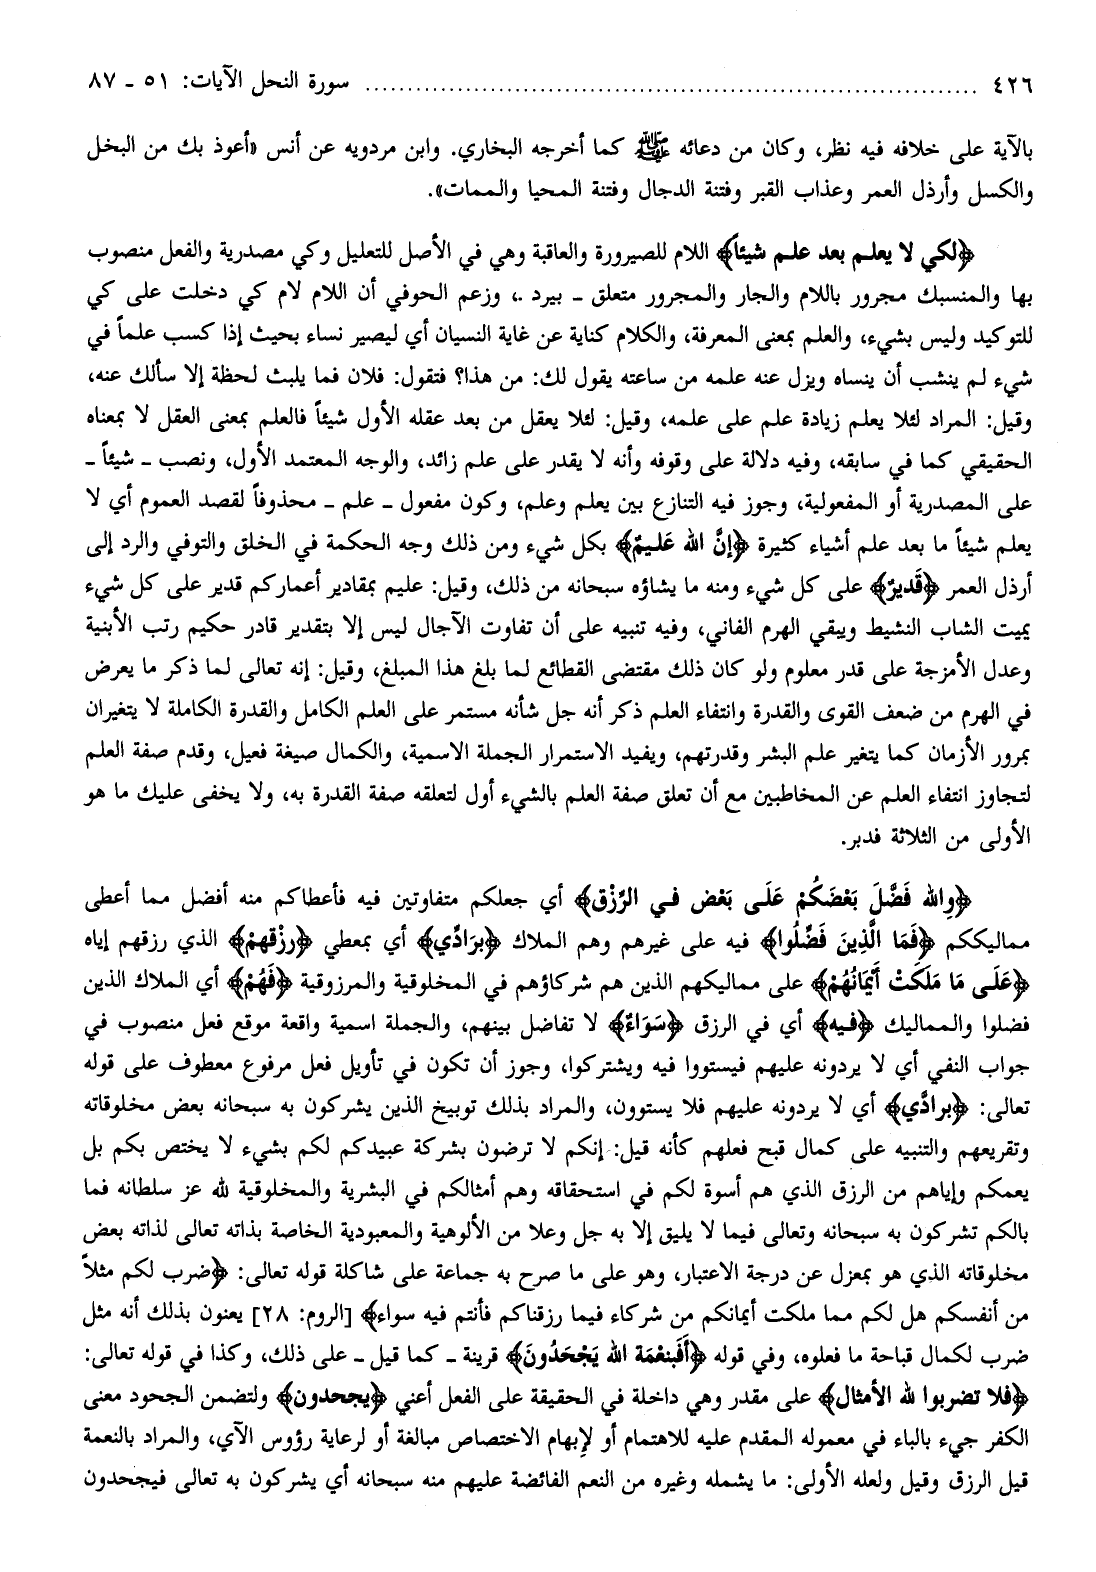 ٤٢٦ ........................................................................ سورة النحل الآيات: ٥١ ـ ٨٧
بالآية على خلافه فيه نظر، وكان من دعائه ﷺ كما أخرجه البخاري. وابن مردويه عن أنس «أعوذ بك من البخل
والكسل وأرذل العمر وعذاب القبر وفتنة الدجال وفتنة المحيا والممات».
﴿لكي لا يعلم بعد علم شيئاً﴾ اللام للصيرورة والعاقبة وهي في الأصل للتعليل وكي مصدرية والفعل منصوب
بها والمنسبك مجرور باللام والجار والمجرور متعلق ـ بيرد ـ، وزعم الحوفي أن اللام لام كي دخلت على كي
للتوكيد وليس بشيء، والعلم بمعنى المعرفة، والكلام كناية عن غاية النسيان أي ليصير نساء بحيث إذا كسب علماً في
شيء لم ينشب أن ينساه ويزل عنه علمه من ساعته يقول لك: من هذا؟ فتقول: فلان فما يلبث لحظة إلا سألك عنه،
وقيل: المراد لئلا يعلم زيادة علم على علمه، وقيل: لئلا يعقل من بعد عقله الأول شيئاً فالعلم بمعنى العقل لا بمعناه
الحقيقي كما في سابقه، وفيه دلالة على وقوفه وأنه لا يقدر على علم زائد، والوجه المعتمد الأول، ونصب ـ شيئاً ـ
على المصدرية أو المفعولية، وجوز فيه التنازع بين يعلم وعلم، وكون مفعول ـ علم ـ محذوفاً لقصد العموم أي لا
يعلم شيئاً ما بعد علم أشياء كثيرة ﴿إنَّ الله عَليمٌ﴾ بكل شيء ومن ذلك وجه الحكمة في الخلق والتوفي والرد إلى
أرذل العمر ﴿قَديرٌ﴾ على كل شيء ومنه ما يشاؤه سبحانه من ذلك، وقيل: عليم بمقادير أعماركم قدير على كل شيء
يميت الشاب النشيط ويبقي الهرم الفاني، وفيه تنبيه على أن تفاوت الآجال ليس إلا بتقدير قادر حكيم رتب الأبنية
وعدل الأمزجة على قدر معلوم ولو كان ذلك مقتضى القطائع لما بلغ هذا المبلغ، وقيل: إنه تعالى لما ذكر ما يعرض
في الهرم من ضعف القوى والقدرة وانتفاء العلم ذكر أنه جل شأنه مستمر على العلم الكامل والقدرة الكاملة لا يتغيران
بمرور الأزمان كما يتغير علم البشر وقدرتهم، ويفيد الاستمرار الجملة الاسمية، والكمال صيغة فعيل، وقدم صفة العلم
لتجاوز انتفاء العلم عن المخاطبين مع أن تعلق صفة العلم بالشيء أول لتعلقه صفة القدرة به، ولا يخفى عليك ما هو
الأولى من الثلاثة فدبر.
﴿والله فَضَّلَ بَعْضَكُمْ عَلَى بَعْض في الرِّزْق﴾ أي جعلكم متفاوتين فيه فأعطاكم منه أفضل مما أعطى
مماليككم ﴿فَمَا الَّذِينَ فَضِّلُوا﴾ فيه على غيرهم وهم الملاك ﴿بِرَادِّي﴾ أي بمعطي ﴿رِزْقهمْ﴾ الذي رزقهم إياه
﴿عَلَى مَا مَلَكَتْ أَيْمَانُهُمْ﴾ على مماليكهم الذين هم شركاؤهم في المخلوقية والمرزوقية ﴿فَهُمْ﴾ أي الملاك الذين
فضلوا والمماليك ﴿فيه﴾ أي في الرزق ﴿سَوَاءٌ﴾ لا تفاضل بينهم، والجملة اسمية واقعة موقع فعل منصوب في
جواب النفي أي لا يردونه عليهم فيستووا فيه ويشتركوا، وجوز أن تكون في تأويل فعل مرفوع معطوف على قوله
تعالى: ﴿برادِّي﴾ أي لا يردونه عليهم فلا يستوون، والمراد بذلك توبيخ الذين يشركون به سبحانه بعض مخلوقاته
وتقريعهم والتنبيه على كمال قبح فعلهم كأنه قيل: إنكم لا ترضون بشركة عبيدكم لكم بشيء لا يختص بكم بل
يعمكم وإياهم من الرزق الذي هم أسوة لكم في استحقاقه وهم أمثالكم في البشرية والمخلوقية لله عز سلطانه فما
بالكم تشركون به سبحانه وتعالى فيما لا يليق إلا به جل وعلا من الألوهية والمعبودية الخاصة بذاته تعالى لذاته بعض
مخلوقاته الذي هو بمعزل عن درجة الاعتبار، وهو على ما صرح به جماعة على شاكلة قوله تعالى: ﴿ضرب لكم مثلاً
من أنفسكم هل لكم مما ملكت أيمانكم من شركاء فيما رزقناكم فأنتم فيه سواء﴾ [الروم: ٢٨] يعنون بذلك أنه مثل
ضرب لكمال قباحة ما فعلوه، وفي قوله ﴿أَفَبنعْمَة الله يَجْحَدُونَ﴾ قرينة ـ كما قيل ـ على ذلك، وكذا في قوله تعالى:
﴿فلا تضربوا لله الأمثال﴾ على مقدر وهي داخلة في الحقيقة على الفعل أعني ﴿يجحدون﴾ ولتضمن الجحود معنى
الكفر جيء بالباء في معموله المقدم عليه للاهتمام أو لإيهام الاختصاص مبالغة أو لرعاية رؤوس الآي، والمراد بالنعمة
قيل الرزق وقيل ولعله الأولى: ما يشمله وغيره من النعم الفائضة عليهم منه سبحانه أي يشركون به تعالى فيجحدون